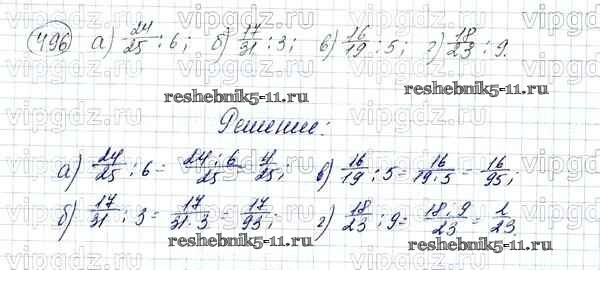 496 а) 24/25 : 6; б) 17/31 : 3; в) 16/19 : 5; г) 18/23 : 9.
reshebnik5-11.ru reshebnik5-11.ru
Решение:
а) 24/25 : 6 = 24 : 6/25 = 4/25; в) 16/19 : 5 = 16/19·5 = 16/95;
б) 17/31 : 3 = 17/31·3 = 17/93; г) 18/23 : 9 = 18 : 9/23 = 2/23.
reshebnik5-11.ru reshebnik5-11.ru
vipgdz.ru